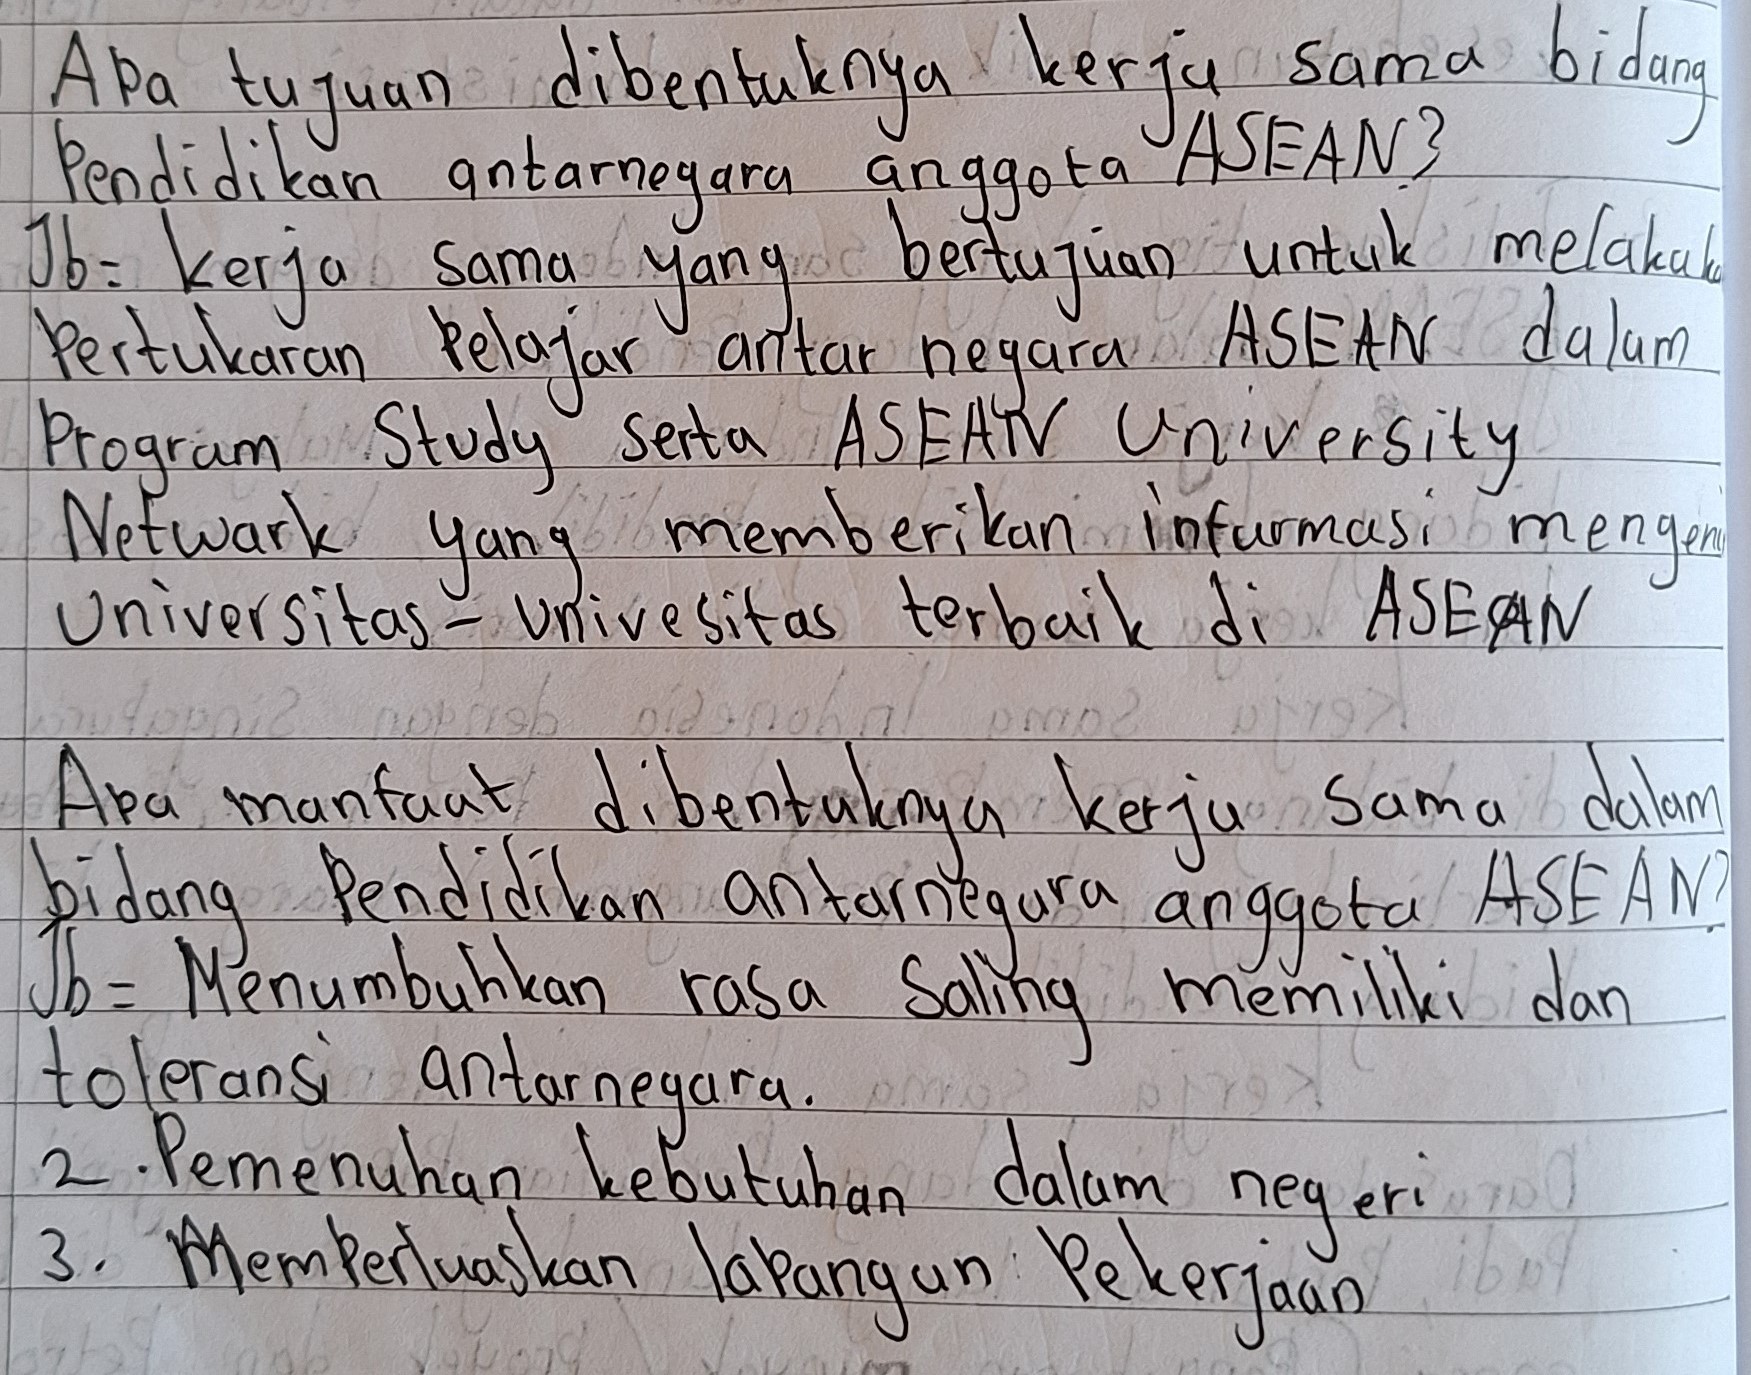 Apa tujuan dibentuknya kerja sama bidang
Pendidikan antarnegara anggota ASEAN?
Jb= kerja sama yang bertujuan untuk melakuk
Pertukaran Pelajar antar negara ASEAN dalam
Program Study serta ASEAN University
Netwark yang memberikan infurmasi mengen
Universitas-univesitas terbaik di ASEAN
Apa manfaat dibentuknya kerja sama dalam
bidang Pendidikan antarnegara anggota ASEAN?
Jb= Menumbuhkan rasa Saling memiliki dan
toleransi antarnegara.
2. Pemenuhan kebutuhan dalam negeri
3. Memperluaskan lapangan Pekerjaan